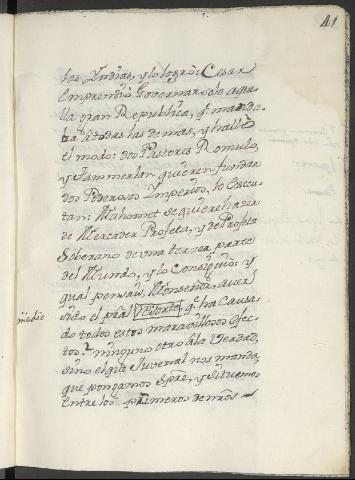 41
las Yndias, y lo logró: Cesar
emprendió Governar solo aque
lla gran Republica, q.e manda
ba à todas las demas, y halló
el modo: dos Pastores Romulo,
y Tammerlan quieren fundar
dos Poderosos Imperios, lo execu
tan: Mahomet se quiere hazer
de Mercader Profeta, y de Profeta
Soberano de una tercera parte
del Mundo, y lo Consiguió: y
qual pensais, Monseñor, aver
sido el pral Resorte q.e ha Causa
medio
do todos estos maravillosos efec
tos? ninguno otro à la Verdad,
sino el que Juvenal nos manda,
que pongamos Spre, y situemos
entre los primeros de nros